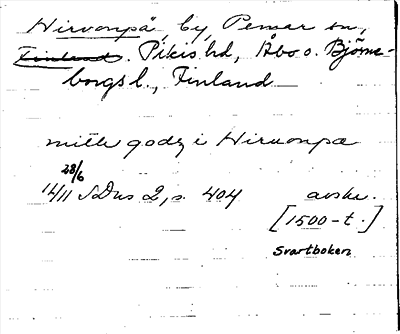 Hirvonpä, by, Pemar sn,
Finland. Pikis hd, Åbo o. Björne-
borgs l., Finland
mitt godz i Hirvonpæ
28/6
1411 SDns 2, s. 404 avskr.
[1500-t.]
Svartboken